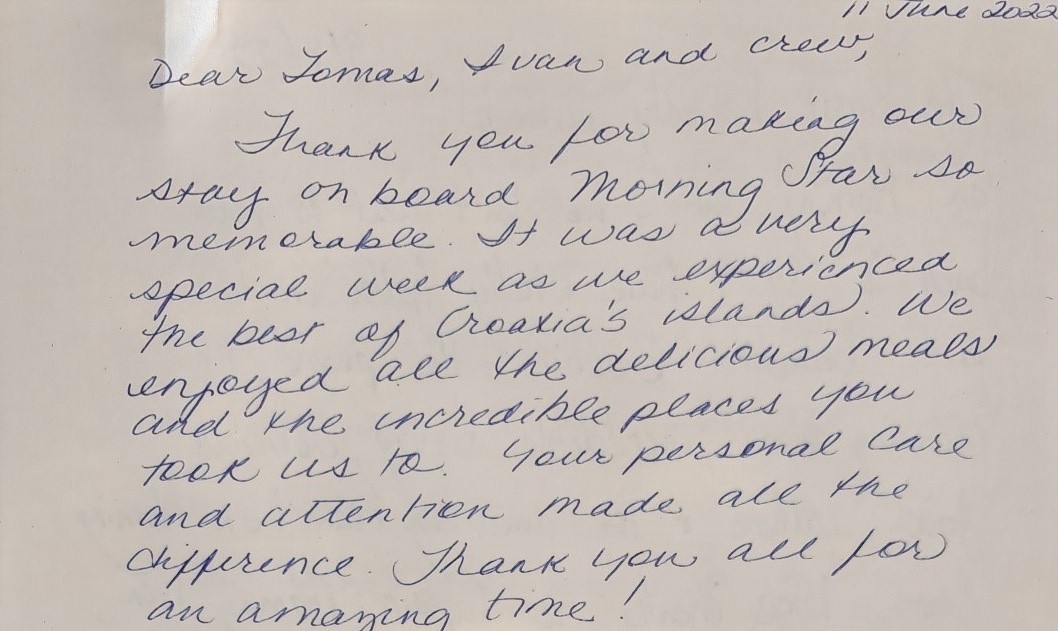 11 June 2022
Dear Tomas, Ivan and crew,
Thank you for making our
stay on board Morning Star so
memorable. It was a very
special week as we experienced
the best of Croatia's islands. We
enjoyed all the delicious meals
and the incredible places you
took us to. Your personal care
and attention made all the
difference. Thank you all for
an amazing time!